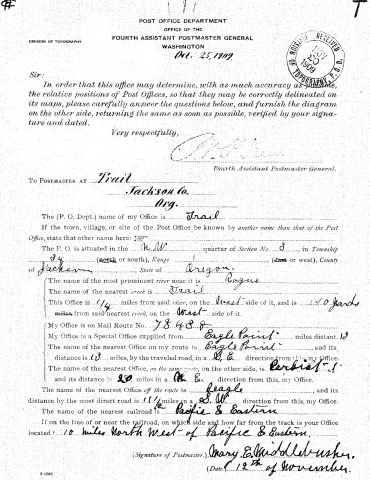 POST OFFICE DEPARTMENT
OFFICE OF THE
DIVISION OF TOPOGRAPHY
FOURTH ASSISTANT POSTMASTER GENERAL
WASHINGTON
Oct. 25, 1909
RECEIVED
NOV
1909
TOPOGRAPHY, P. O. D.
Sir:
In order that this office may determine, with as much accuracy as possible,
the relative positions of Post Offices, so that they may be correctly delineated on
its maps, please carefully answer the questions below, and furnish the diagram
on the other side, returning the same as soon as possible, verified by your signa-
ture and dated.
Very respectfully,
Fourth Assistant Postmaster General.
TO POSTMASTER AT Trail
Jackson Co.
Org.
The (P. O. Dept.) name of my Office is Trail
If the town, village, or site of the Post Office be known by another name than that of the Post
Office, state that other name here:
The P. O. is situated in the N.W. quarter of Section No. 3, in Township
(north or south), Range (east or west), County
of Jackson, State of Oregon.
The name of the most prominent river near it is Rogue
The name of the nearest creek is Trail
This Office is 1/4 miles from said river, on the West side of it, and is 140 yards
miles from said nearest creek, on the West side of it.
My Office is on Mail Route No. 73488
My Office is a Special Office supplied from Eagle Point miles distant. 13
The name of the nearest Office on my route is Eagle Point and its
distance is 13 miles, by the traveled road, in a S.E. direction from this, my Office.
The name of the nearest Office, on the same route, on the other side, is Persist
and its distance is 20 miles in a N.E. direction from this, my Office.
The name of the nearest Office off the route is Beagle and its
distance by the most direct road is 11 1/2 miles in a S.W. direction from this, my Office.
The name of the nearest railroad is Pacific & Eastern
If on the line of or near the railroad, on which side and how far from the track is your Office
located? 10 miles North West of Pacific & Eastern.
(Signature of Postmaster.) Mary E. Middlebusher.
(Date) 12th of November.